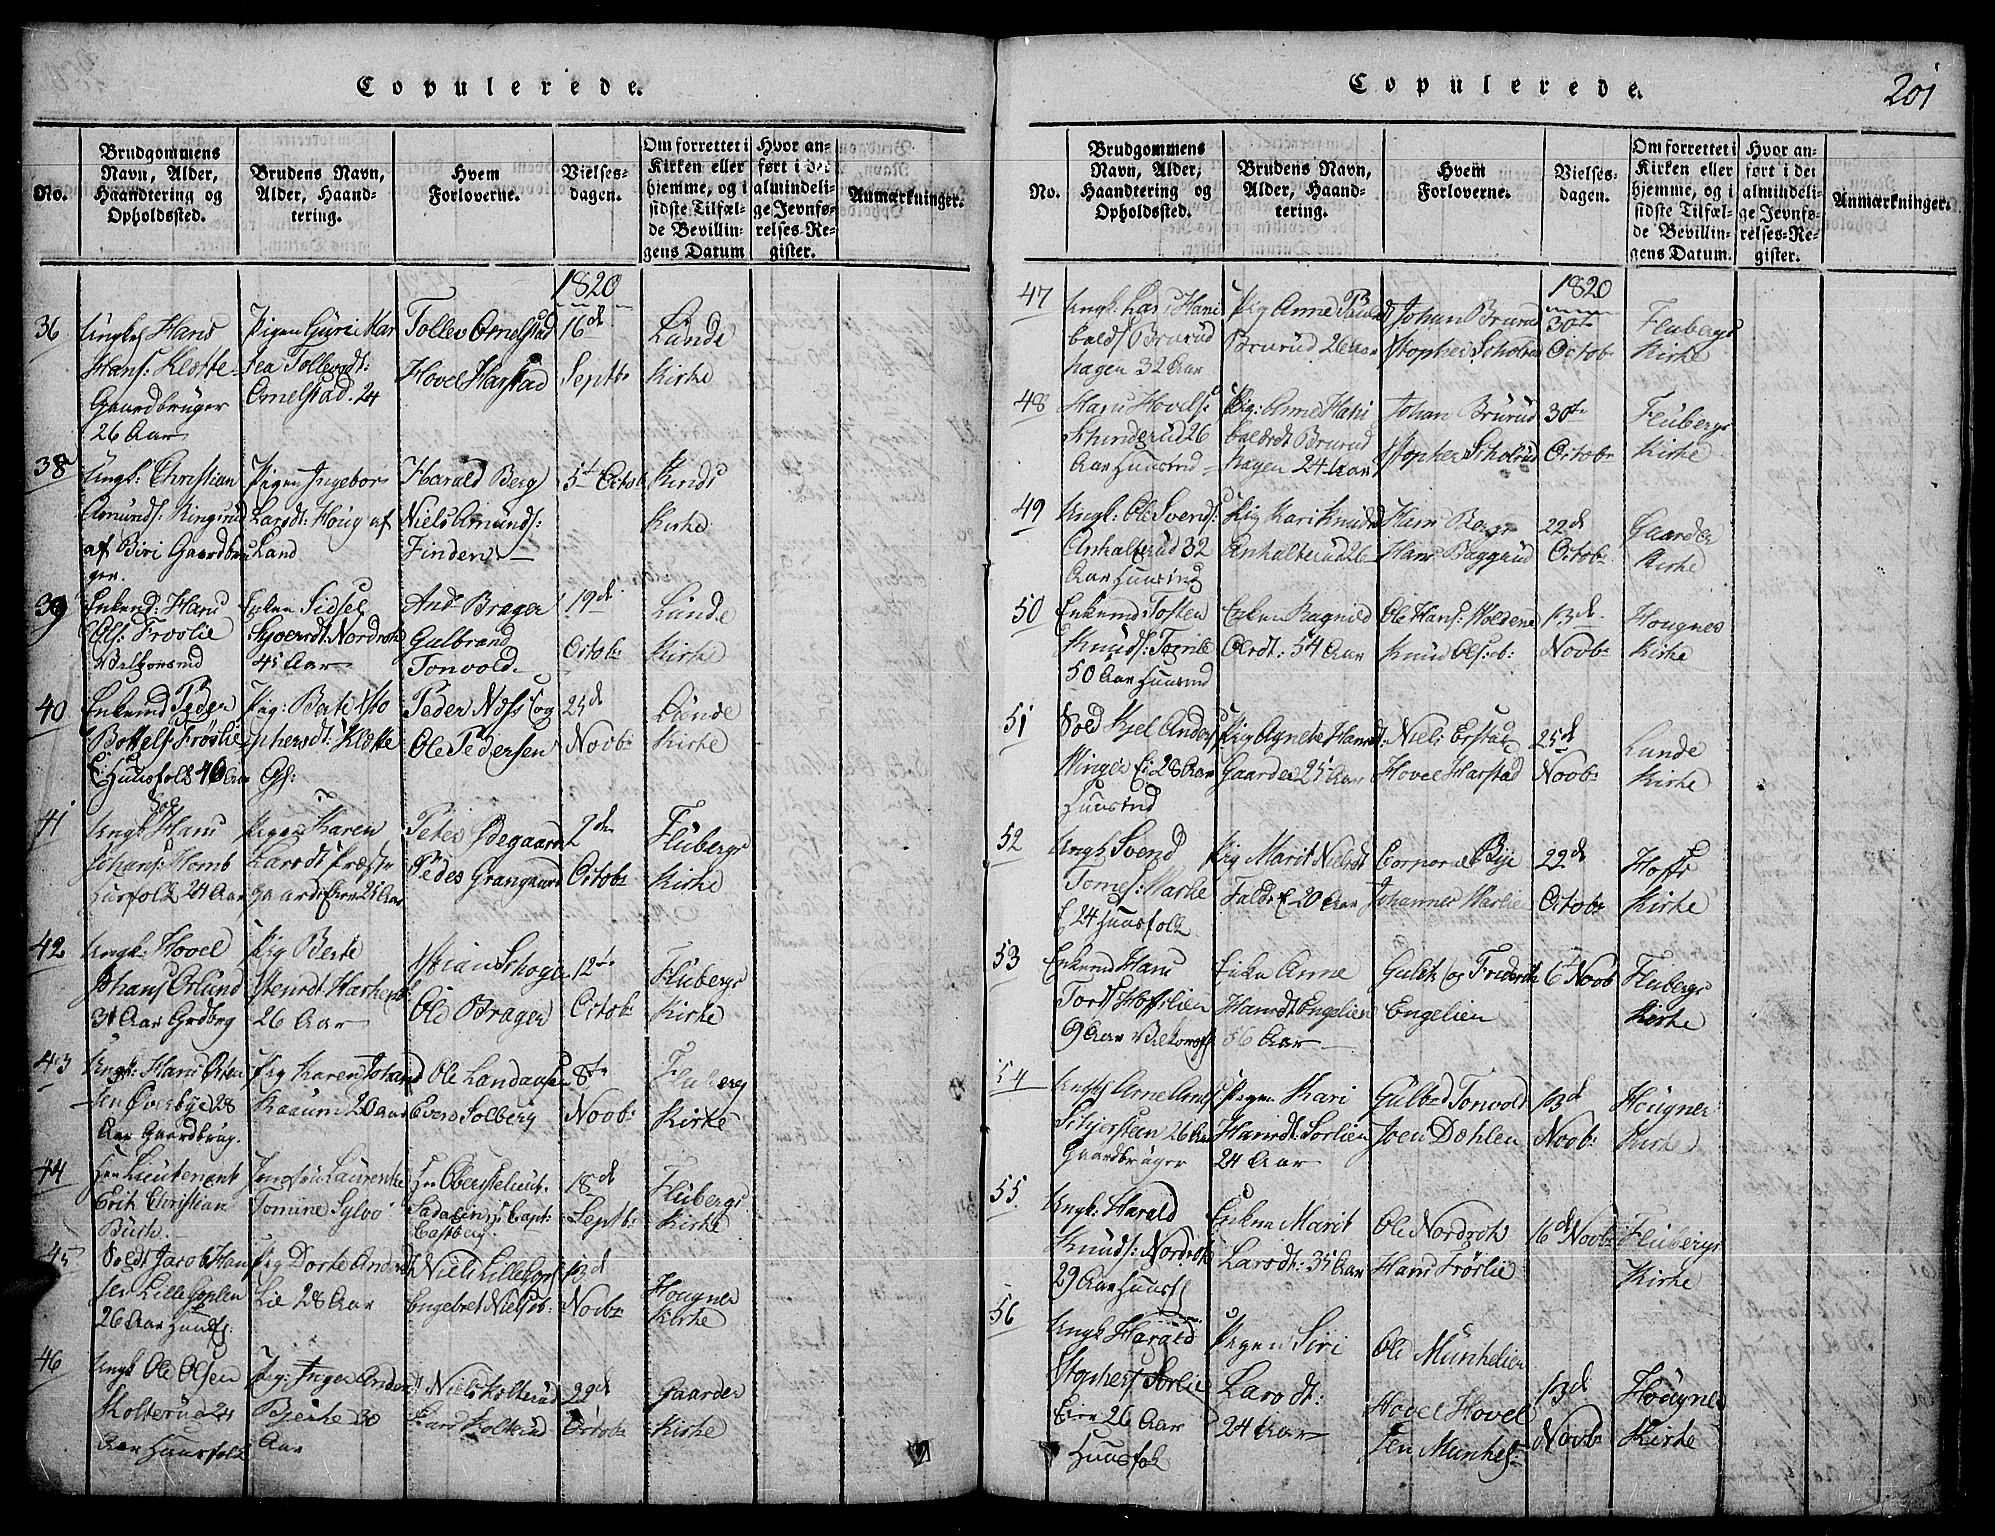 Copulerede.
No.
Brudgommens Navn, Alder, Haandtering og Opholdssted.
Brudens Navn, Alder, Haandtering.
Hvem Forloverne.
Vielses-dagen.
Om forrettet i Kirken eller hjemme, og i sidste Tilfælde Bevillingens Datum
Hvor anført i det almindelige Jevnførelses-Register.
Anmærkninger.
1820
36 Ungk Hans Hans: Klette Gaardbruger 26 Aar
Pigen Guri Mar Tollevdt: Omelstad. 24
Tollev Omelstad Hovel Harstad
16d Septbr
Lunde Kirke
38 Ungk: Christian Amunds: Ringsrud af Biri Gaardbru ger.
Pigen Ingebor Larsdt: Houg af Land
Harald Berg Niels Amunds: Finden
5t Octob
Kinds Kirke
39 Enkemd: Hans Ols: Frøslie
Enken Sidsel Nordrok 45 Aar
And Brager Gulbrand Tonvold
19de Octobr
Lunde Kirke
40 Enkemd Peder Bottels Frøslie Huusfolk 46 Aar
Pig: Berte Sto phersdt: Klette
Peder Noss og Ole Pedersen
25d Novbr
Lunde Kirke
41 Ungk Hans Johans: Homb Husfolk 24 Aar
Pigen Karen Larsdt Præste gaards Eien 25 Aar
Peter Ødegaard Peder Grangaard
7de Octobr
Flubergs Kirke
42 Ungk: Hovel Johans 31 Aar Grdbrg
Pig Berte 26 Aar
Ole Brager
12te Octobr
Flubergs Kirke
43 Ungk: Hans Olen sen Øverbye 28 Aar Gaardbrug.
Pig Karen Johand Kasum 20 Aar
Ole Landaasen Evers Solberg
8te Novbr
Fluberg Kirke
44 Hr Lieutenant Erik Christian
Jomfru Laurentze Tomine Sylvo
Hr Oberstelieut. Capt: Castberg
18d Septbr
Flubergs Kirke
45 Soldt Jacob Han sen Lille Goplen 26 Aar Huusf:
Pig Dorte Andersdt Lie 28 Aar
Niels Lille Gopl Engebret Nielseb:
13d Novbr
Hougner Kirke
46 Ungk Ole Olsen Kolterud 24 Aar Huusfolk
Pig: Inger Anders Bjerke 30 Aar
Niels Kolterud Lars Kolterud
22d Octobr
Gaarder Kirke
Copulerede.
201
No.
Brudgommens Navn, Alder, Haandtering og Opholdssted.
Brudens Navn, Alder, Haandtering.
Hvem Forloverne.
Vielses-dagen.
Om forrettet i Kirken eller hjemme, og i sidste Tilfælde Bevillingens Datum.
Hvor anført i det almindelige Jevnførelses-Register.
Anmærkninger.
1820
47 Ungk: Lars Hani balds Brurud hagen 32 Aar
Pig Anne Brurud 26 Aar
Johan Brurud Stopher Scholrud
30te Octobr
Flubergs Kirke
48 Hans Hovels: 26 Aar Huusmd
Pig: Anne Hani baldsdt Brurud hagen 24 Aar
Johan Brurud Stopher Scholrud
30te Octobr
Flubergs Kirke
49 Ungk: Ole Svends: Anhalterud 32 Aar Huusmd
Pig Kari Knudsd Anhalterud 26
Hans Berge Hans Baggrud
22d Octobr
Gaarder Kirke
50 Enkemd Tosten Knuds: 50 Aar Huusmd
Enken Ragnild Olsdt: 54 Aar
Ole Hans: Holdene Knud Olseb:
13d Novbr
Hougnes Kirke
51 Sold Kjel Anders Vinger Ei 28 Aar Huusmd
Pig Agnete Hansdt: Gaarder 25 Aar
Niels Erstad Hovel Harstad
25d Novbr
Lunde Kirke
52 Ungk Svend Toms: E 24 Huusfolk
Pig Marit Nielsdt Falds E 20 Aar
Corporal Bye Johannes Harlie
22d Octobr
Hoffs Kirke
53 Enkemd Hans Tords Hoffslien 69 Aar
Enken Anne Hansdt Engelien 56 Aar
Gulsk og Frederik Engelien
6t Novb
Flubergs Kirke
54 Ungk Arne 26 Aar Gaardbruger
Pigen Kari Hansdt Sorlien 24 Aar
Gulbrd Tonvold Joen Døhlen
13d Novbr
Hougner Kirke
55. Ungk: Harald Knuds: Nordrok 29 Aar Huusf
Enken Marit Larsdt: 35 Aar
Ole Nordrok Hans Frøslie
16d Novbr
Flubergs Kirke
56 Ungk Harald Stophers Sorlie Eier 26 Aar Huusfolk
Pigen Siri Larsdt: 24 Aar
Ole Munkelien Hovel Hovel sen Munkel:
13d Novbr
Hougner Kirke